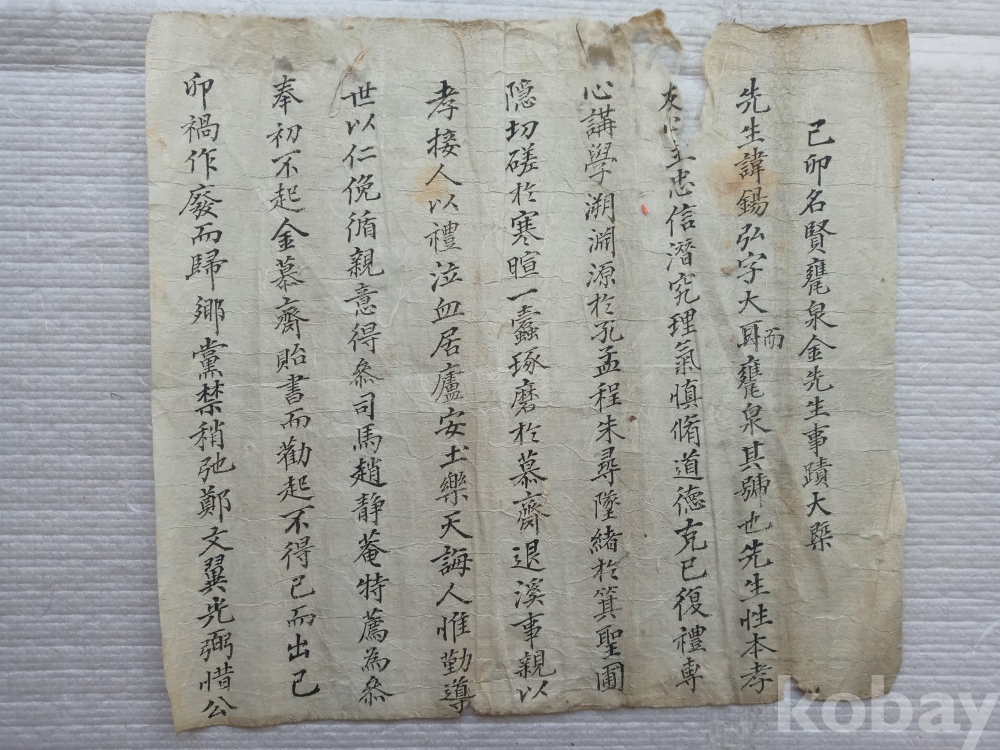 己卯名賢甕泉金先生事蹟大槩
先生諱錫弘字大而甕泉其號也先生性本孝
友 主忠信潛究理氣愼脩道德克已復禮專
心講學溯淵源於孔孟程朱尋墜緖於箕聖圃
隱切磋於寒暄一蠹琢磨於慕齋退溪事親以
孝接人以禮泣血居廬安土樂天誨人惟勤導
世以仁俛循親意得叅司馬趙靜菴特薦為叅
奉初不起金慕齋貽書而勸起不得已而出己
卯禍作廢而歸鄕黨禁稍弛鄭文翼光弼惜公
kobay